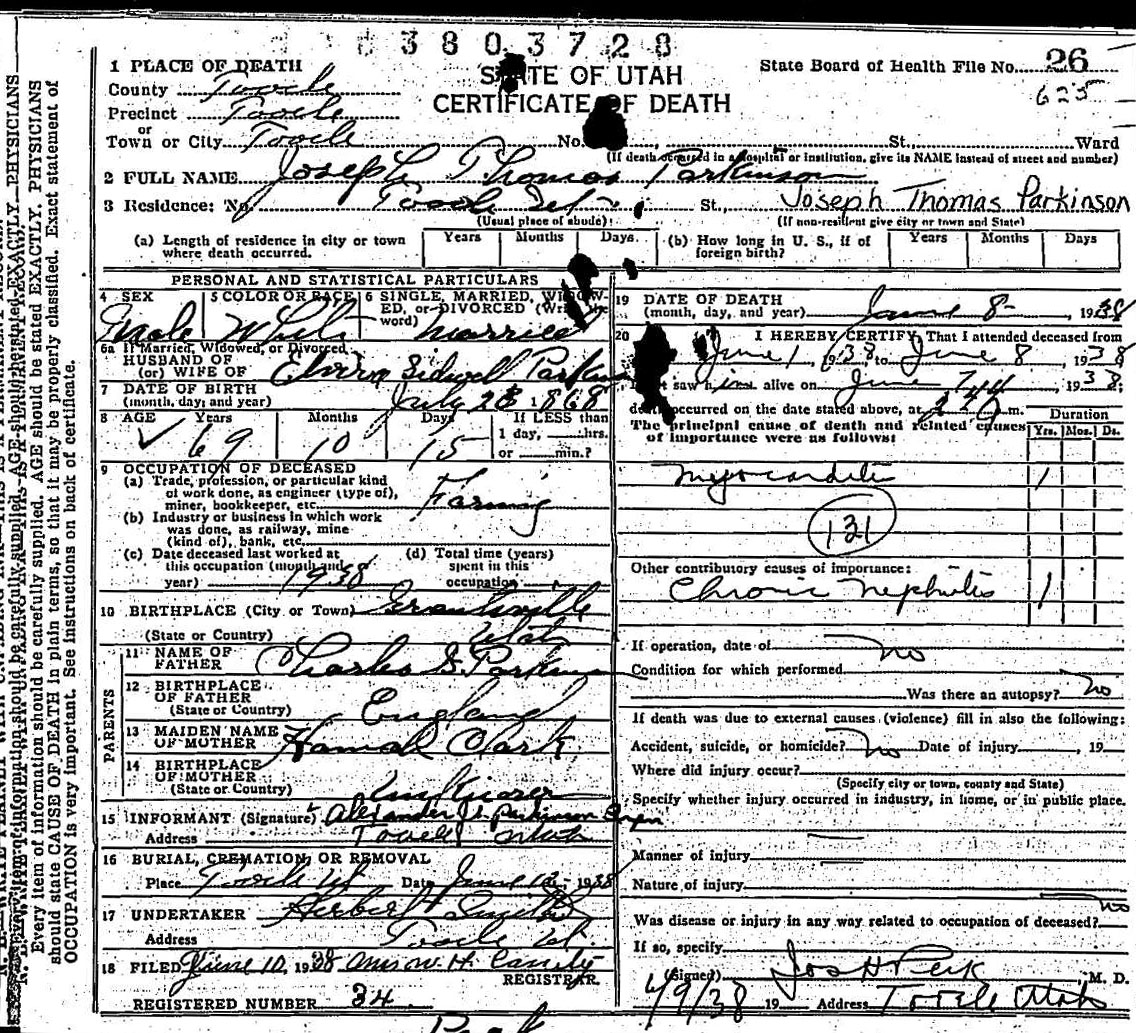 3803728
STATE OF UTAH
CERTIFICATE OF DEATH
State Board of Health File No. 26
625
1 PLACE OF DEATH
County Tooele
Precinct Tooele
or
Town or City Tooele No. St., Ward
(If death occurred in a hospital or institution, give its NAME instead of street and number)
2 FULL NAME Joseph Thomas Parkinson
3 Residence: No. Tooele Ut St., Joseph Thomas Parkinson
(Usual place of abode) (If non-resident give city or town and State)
(a) Length of residence in city or town where death occurred. Years Months Days (b) How long in U. S., if of foreign birth? Years Months Days
PERSONAL AND STATISTICAL PARTICULARS
4 SEX 5 COLOR OR RACE 6 SINGLE, MARRIED, WIDOWED, or DIVORCED (Write the word)
Male White Married
6a If Married, Widowed, or Divorced
HUSBAND OF
(or) WIFE OF Elvira Bidwell
7 DATE OF BIRTH
(month, day, and year) July 23 1868
8 AGE Years Months Days If LESS than
69 10 15 1 day, hrs.
or min.?
9 OCCUPATION OF DECEASED
(a) Trade, profession, or particular kind
of work done, as engineer (type of),
miner, bookkeeper, etc. Farming
(b) Industry or business in which work
was done, as railway, mine
(kind of), bank, etc.
(c) Date deceased last worked at (d) Total time (years)
this occupation (month and spent in this
year) 1938 occupation
10 BIRTHPLACE (City or Town) Grantsville
(State or Country) Utah
PARENTS
11 NAME OF
FATHER Charles G. Parkinson
12 BIRTHPLACE
OF FATHER
(State or Country) England
13 MAIDEN NAME
OF MOTHER Hannah Clark
14 BIRTHPLACE
OF MOTHER
(State or Country) Unknown
15 INFORMANT (Signature) Alexander Parkinson
Address Tooele Utah
16 BURIAL, CREMATION, OR REMOVAL
Place Tooele Ut Date June 12, 1938
17 UNDERTAKER Herbert Smith
Address Tooele Ut.
18 FILED June 10, 1938
REGISTRAR.
REGISTERED NUMBER 34
19 DATE OF DEATH
(month, day, and year) June 8 - 1938
20 I HEREBY CERTIFY, That I attended deceased from
June 1 1938 to June 8, 1938
I last saw him alive on June 7th 1938;
death occurred on the date stated above, at m.
The principal cause of death and related causes Duration
of importance were as follows: Yrs. Mos. Ds.
Myocarditis 1
131
Other contributory causes of importance:
Chronic Nephritis 1
If operation, date of no
Condition for which performed
Was there an autopsy? no
If death was due to external causes (violence) fill in also the following:
Accident, suicide, or homicide? no Date of injury , 19
Where did injury occur?
(Specify city or town, county and State)
Specify whether injury occurred in industry, in home, or in public place.
Manner of injury
Nature of injury
Was disease or injury in any way related to occupation of deceased? no
If so, specify
(Signed) Jos H Peck M. D.
6/9/38 19 Address Tooele Utah
Every item of information should be carefully supplied. AGE should be stated EXACTLY. PHYSICIANS
should state CAUSE OF DEATH in plain terms, so that it may be properly classified. Exact statement of
OCCUPATION is very important. See instructions on back of certificate.